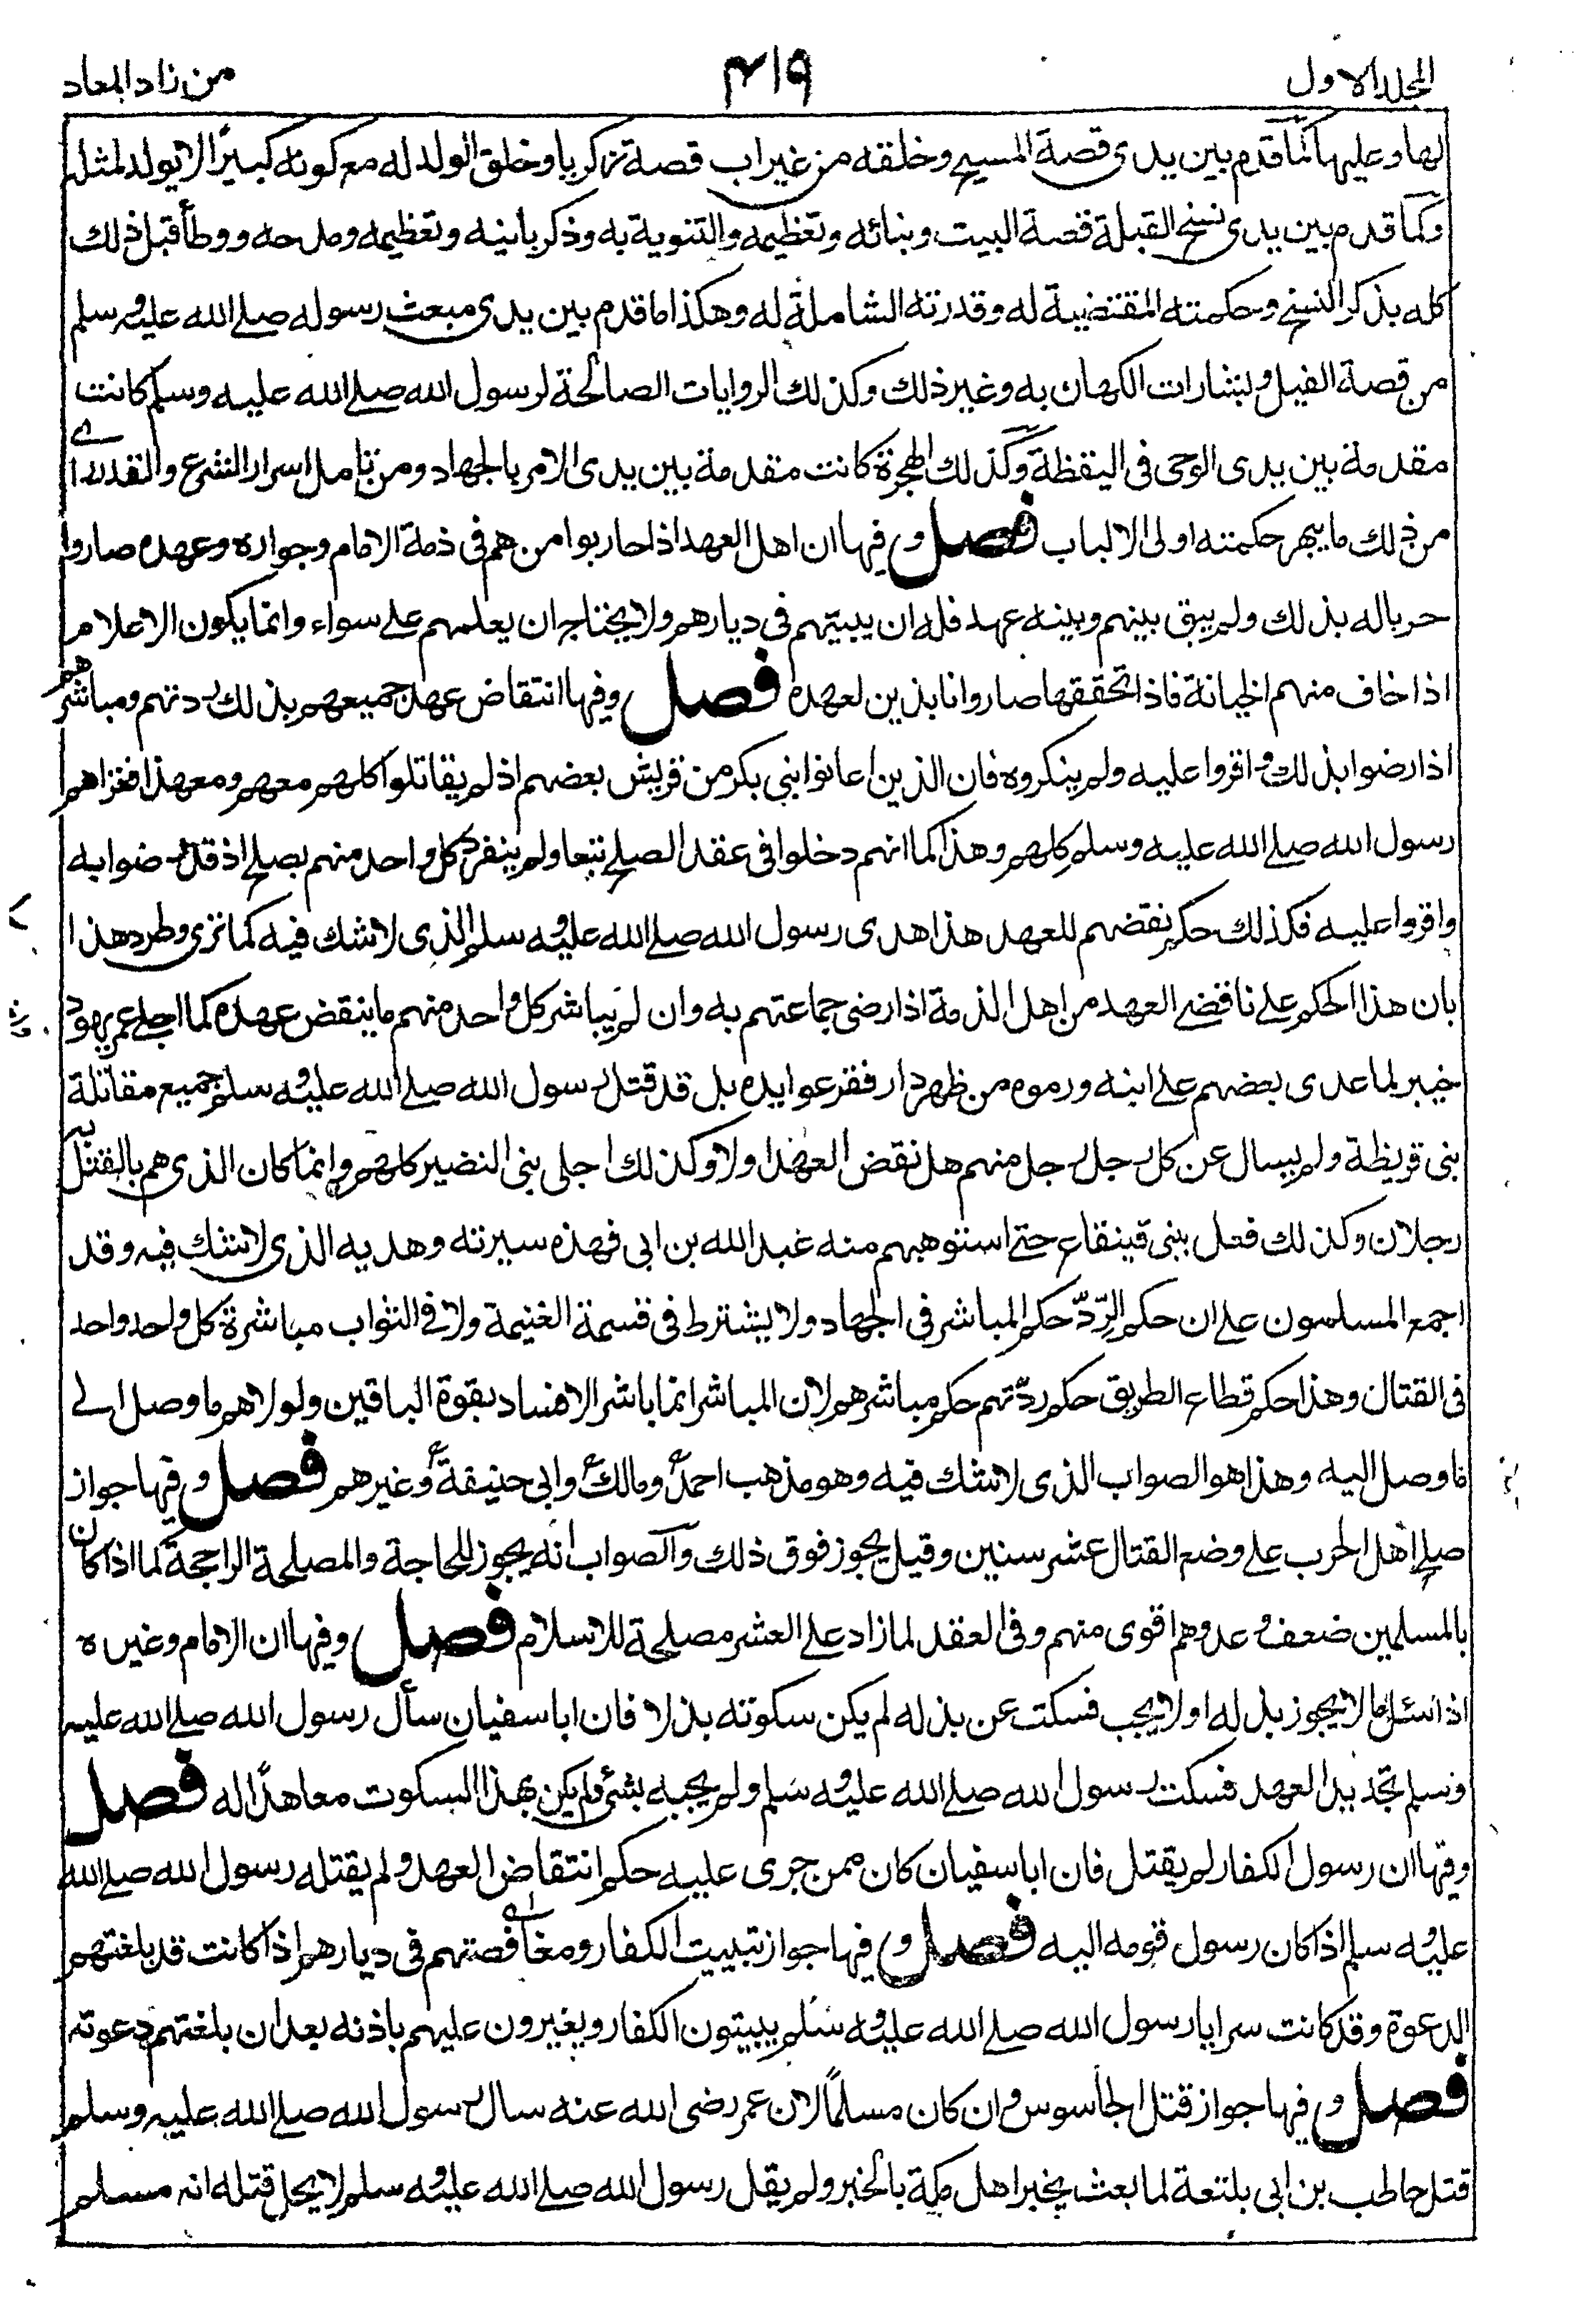 المجلد الاول ۴۱۹ من زاد المعاد
لها وعليها كما قدم بين يدى قصة المسيح وخلقه من غير اب قصة زكريا وخلق الولد له مع كونه كبيرًا لا يولد لمثله
وكما قدم بين يدى نسخ القبلة قصة البيت وبنائه وتعظيمه والتنويه به وذكر بانيه وتعظيمه ومدحه ووطأ قبل ذلك
كله بذكر النسخ وحكمته المقتضية له وقدرته الشاملة له وهكذا ما قدم بين يدى مبعث رسوله صلے الله عليه وسلم
من قصة الفيل وبشارات الكهان به وغير ذلك وكذلك الروايات الصالحة لرسول الله صلے الله عليه وسلم كانت
مقدمة بين يدى الوحى فى اليقظة وكذلك الهجرة كانت مقدمة بين يدى الامر بالجهاد ومن تامل اسرار الشرع والقدر راى
من ذلك ما يبهر حكمته اولى الالباب فصل وفيها ان اهل العهد اذا حاربوا من هم فى ذمة الامام وجواره وعهده صاروا
حربا له بذلك ولم يبق بينهم وبينه عهد فله ان يبيّتهم فى ديارهم ولا يحتاج ان يعلمهم على سواء وانما يكون الاعلام
اذا خاف منهم الخيانة فاذا تحققها صاروا نابذين لعهده فصل وفيها انتقاض عهد جميعهم بذلك ردتهم ومباشرهم
اذا رضوا بذلك واقروا عليه ولم ينكروه فان الذين اعانوا بنى بكر من قريش بعضهم اذ لم يقاتلوا كلهم معهم ومعهذا فغزاهم
رسول الله صلے الله عليه وسلم كلهم وهذا كما انهم دخلوا فى عقد الصلح تبعا ولم ينفرد كل واحد منهم بصلح اذ قد رضوا به
واقروا عليه فكذلك حكم نقضهم للعهد هذا هدى رسول الله صلے الله عليه وسلم الذى لا شك فيه كما ترى وطرد هذا
بان هذا الحكم على ناقضى العهد من اهل الذمة اذا رضى جماعتهم به وان لم يباشر كل واحد منهم ما ينقض عهده كما اجلى عمر يهود
خيبر لما عدى بعضهم على ابنه ورموه من ظهر دار ففدعوا يده بل قد قتل رسول الله صلے الله عليه وسلم جميع مقاتلة
بنى قريظة ولم يسال عن كل رجل رجل منهم هل نقض العهد ا ولا وكذلك اجلى بنى النضير كلهم وانما كان الذى هم بالقتل به
رجلان وكذلك فعل ببنى قينقاع حتى استوهبهم منه عبد الله بن ابى فهذه سيرته وهديه الذى لا شك فيه وقد
اجمع المسلمون على ان حكم الرّدّ حكم المباشر فى الجهاد ولا يشترط فى قسمة الغنيمة ولا فى الثواب مباشرة كل واحد واحد
فى القتال وهذا حكم قطاع الطريق حكم ردّتهم حكم مباشرهم لان المباشر انما باشر الافساد بقوة الباقين ولولاهم ما وصل الى
ما وصل اليه وهذا هو الصواب الذى لا شك فيه وهو مذهب احمد ومالك وابى حنيفة وغيرهم فصل وفيها جواز
صلح اهل الحرب على وضع القتال عشر سنين وقيل يجوز فوق ذلك والصواب انه يجوز للحاجة والمصلحة الراجحة كما اذا كان
بالمسلمين ضعف وعدوهم اقوى منهم وفى العقد لما زاد على العشر مصلحة للاسلام فصل وفيها ان الامام وغيره
اذا سئل ما لا يجوز بذله او لا يجب فسكت عن بذله لم يكن سكوته بذلا فان ابا سفيان سأل رسول الله صلے الله عليه
وسلم تجديد العهد فسكت رسول الله صلے الله عليه وسلم ولم يجبه بشئ ولم يكن بهذا السكوت معاهدًا له فصل
وفيها ان رسول الكفار لم يقتل فان ابا سفيان كان ممن جرى عليه حكم انتقاض العهد ولم يقتله رسول الله صلے الله
عليه وسلم اذا كان رسول قومه اليه فصل وفيها جواز تبييت الكفار ومغافصتهم فى ديارهم اذا كانت قد بلغتهم
الدعوة وقد كانت سرايا رسول الله صلے الله عليه وسلم يبيتون الكفار ويغيرون عليهم باذنه بعد ان بلغتهم دعوته
فصل وفيها جواز قتل الجاسوس وان كان مسلمًا لان عمر رضى الله عنه سال رسول الله صلے الله عليه وسلم
قتل حاطب بن ابى بلتعة لما بعث يخبر اهل مكة بالخبر ولم يقل رسول الله صلے الله عليه وسلم لا يحل قتله انه مسلم